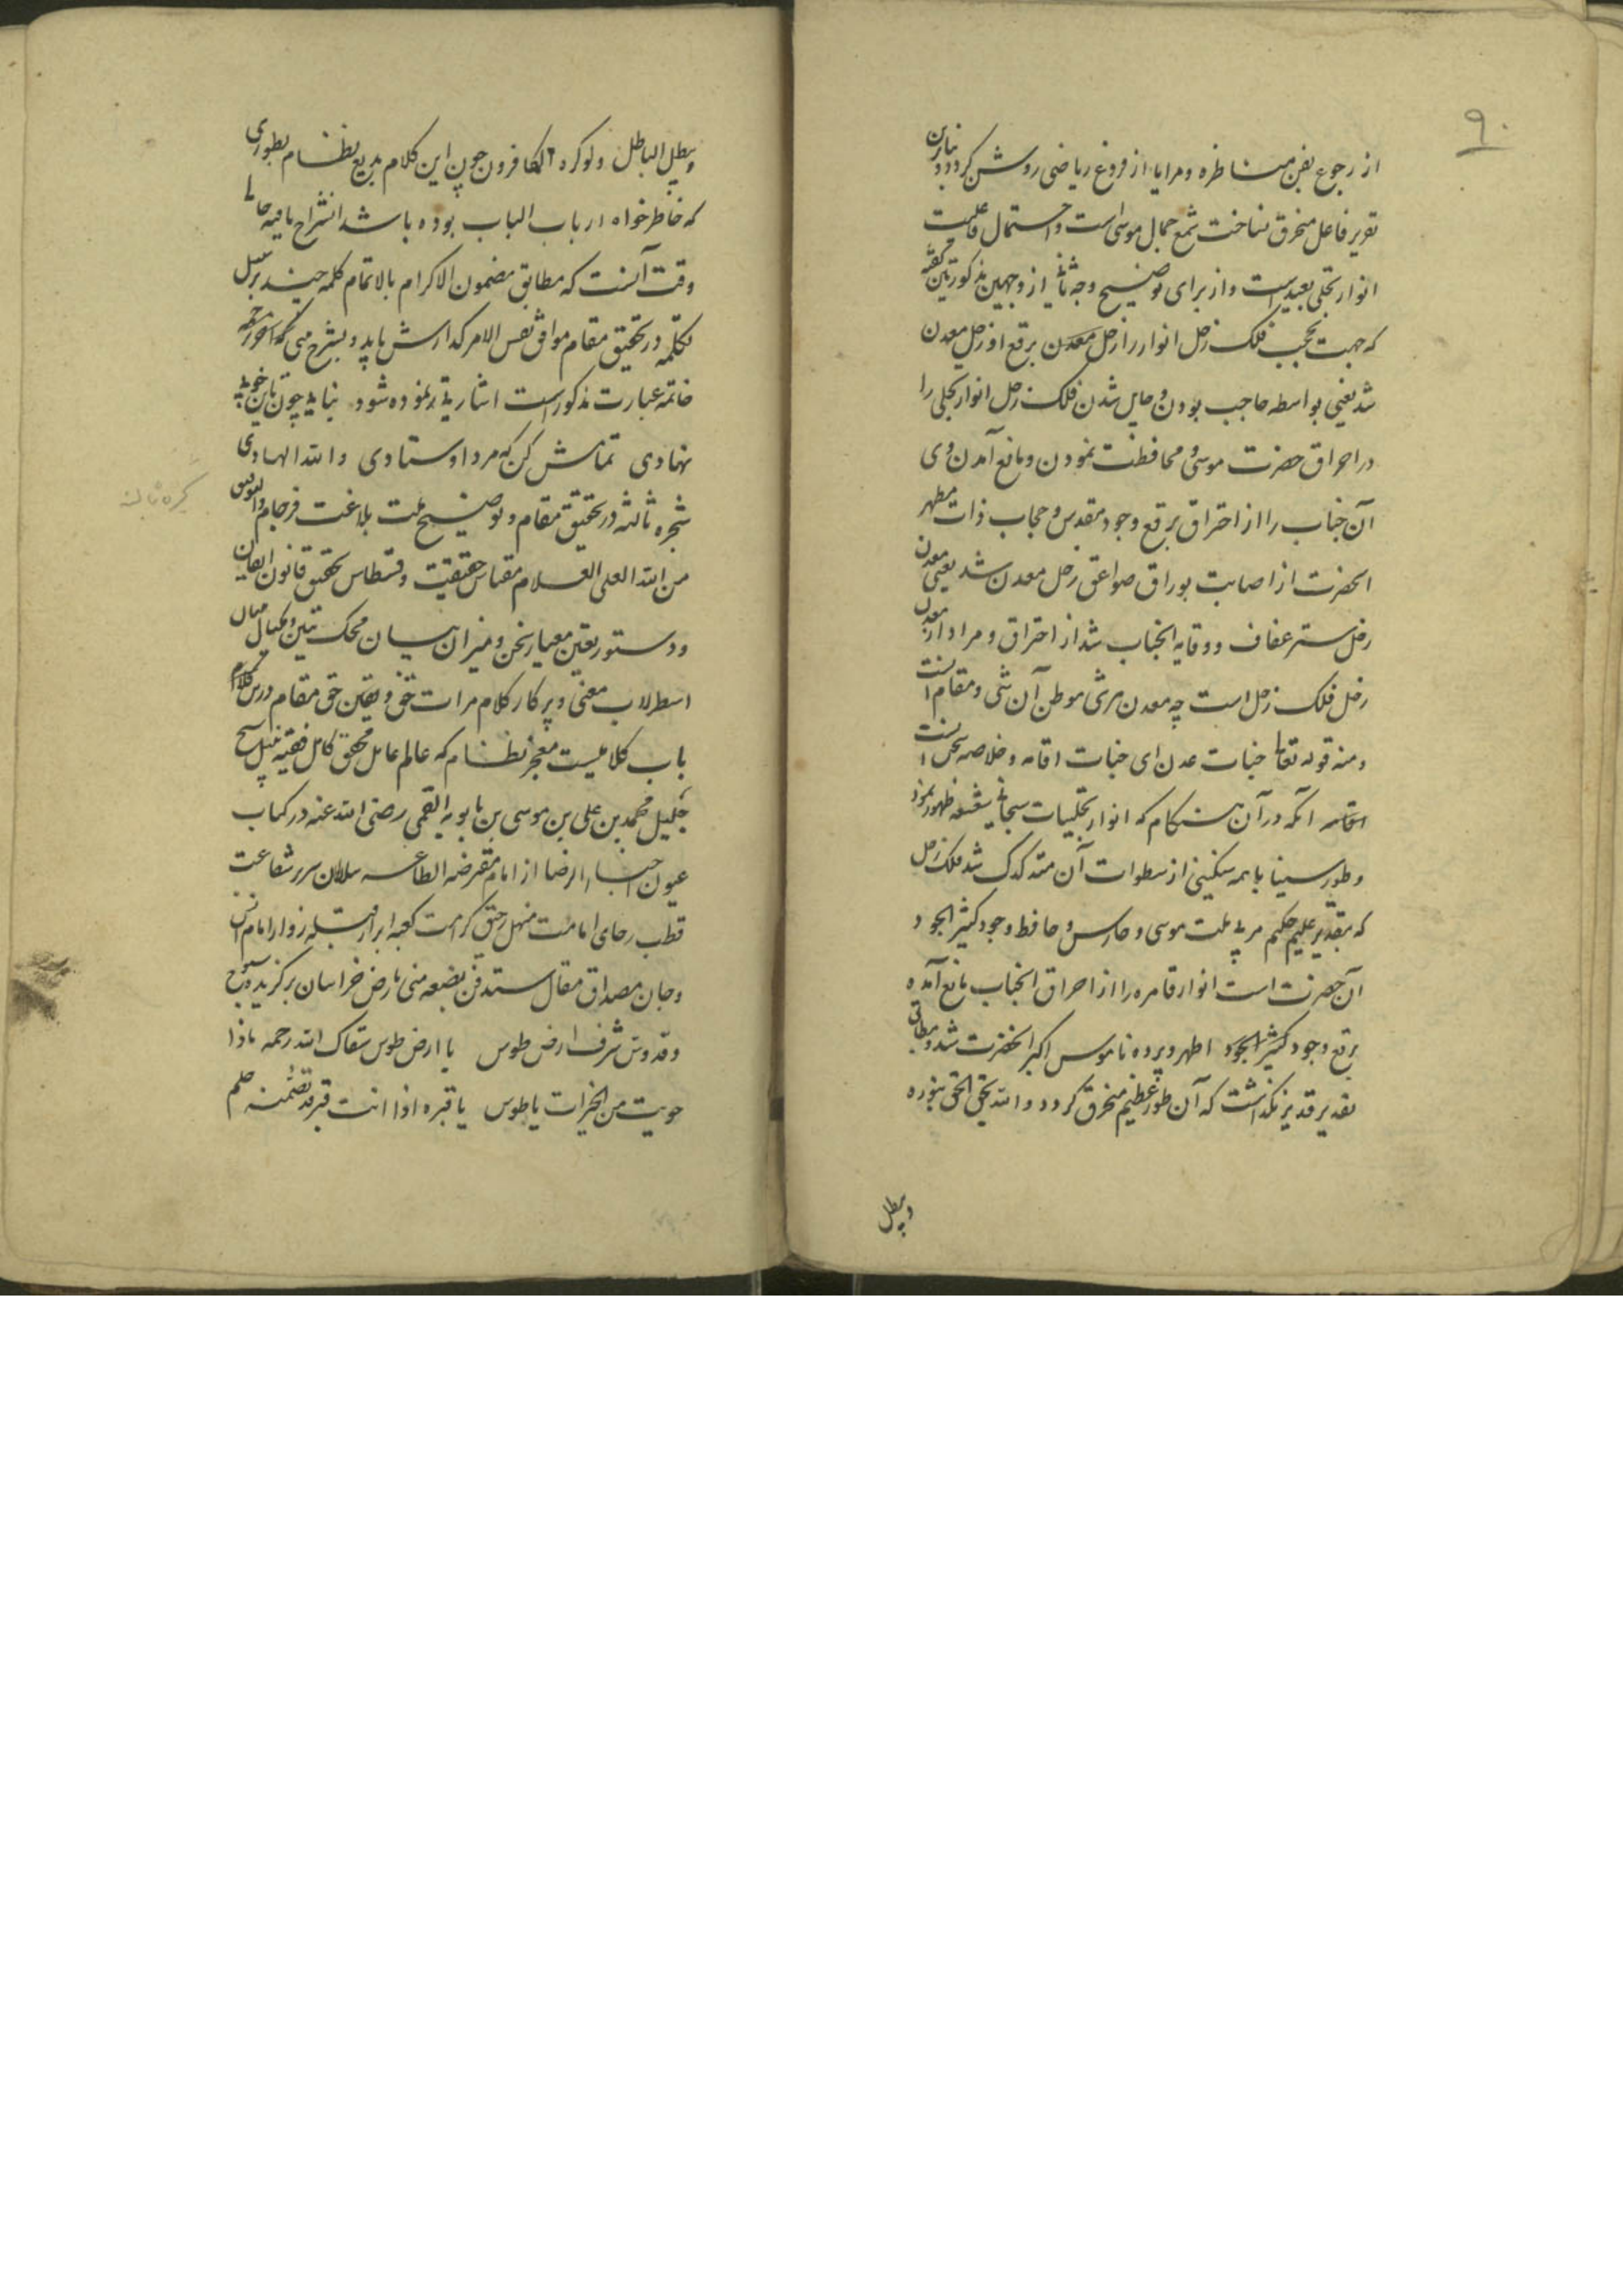 ۹۰
از رجوع بفن مناظره و مرایا از فروغ ریاضی روشن کردد و بنابرین
تقریر فاعل منخرق نساخت شمع جمال موسی است و احتمال فاعلیت
انوار تجلی بعید است و از برای توضیح وجه ثانی از وجهین مذکورین گفته
که جهت تحجب فلک زحل انوار را زحل معدن برقع او زحل معدن
شد یعنی بواسطه حاجب بودن و حایل شدن فلک زحل انوار تجلی را
در احراق حضرت موسی و محافظت نمودن و مانع آمدن وی
آن جناب را از احتراق برقع وجود مقدس و حجاب ذات مطهر
انحضرت از اصابت بوراق صواعق زحل معدن شد یعنی معدن
زحل ستر عفاف و وقایه انجناب شد از احتراق و مراد از معدن
زحل فلک زحل است چه معدن هر شی موطن آن شی و مقام انست
و منه قوله تعالی جنات عدن ای جنات اقامه و خلاصه سخن انست
انکه در آن هنکام که انوار تجلیات سبحانی شعشعه ظهور نمود
و طور سینا با همه سنکینی از سطوات آن متدکدک شد فلک زحل
که بتقدیر علیم حکیم مربی ملت موسی و حارس و حافظ وجود کثیر الجود
آن حضرت است انوار قاهره را از احراق انجناب مانع آمده
برقع وجود کثیر الجود اطهر و پرده ناموس اکبر انحضرت شد و مطابق
تقدیر قدیر نکذاشت که آن طور عظیم منخرق کردد و الله یحق الحق بنوره
و یبطل
و یبطل الباطل ولو کره الکافرون چون این کلام بدیع نظام بطوری
که خاطرخواه ارباب الباب بوده باشد انشراح یافیه حالا
وقت آنست که مطابق مضمون الاکرام بالاتمام کلمه چند بر سبیل
تکلمه در تحقیق مقام موافق نفس الامر کذارش یابد و بشرح می که در
خاتمه عبارت مذکور است اشارتی نموده شود بنایی چون باین خوبی
نهادی تمامش کن که مرد اوستادی والله الهادی
شجره ثالثه در تحقیق مقام و توضیح ملت بلاغت فرجام والتوفیق
من الله العلی العلام مقیاس حقیقت و قسطاس تحقیق قانون ایقان
و دستور یقین معیار سخن و میزان بیان محک تبیین و مکیال
اسطرلاب معنی و پرکار کلام مرات حق و یقین حق مقام درس کلام
باب کلامیست معجز نظام که عالم عامل محقق کامل فقیه نبیل شیخ
جلیل محمد بن علی بن موسی بن بابویه القمی رضی الله عنه در کتاب
عیون اخبار الرضا از امام مفترض الطاعه سلطان سریر شفاعت
قطب رحای امامت منهل رحیق کرامت کعبه ابرار قبله زوار امام انس
و جان مصداق مقال ستدفن بضعه منی بارض خراسان برکزیده
و قدوس شرف ارض طوس یا ارض طوس سقاک الله رحمه ماذا
حویت من الخیرات یا طوس یا قبره اذا انت قبر قد تضمنه حلم